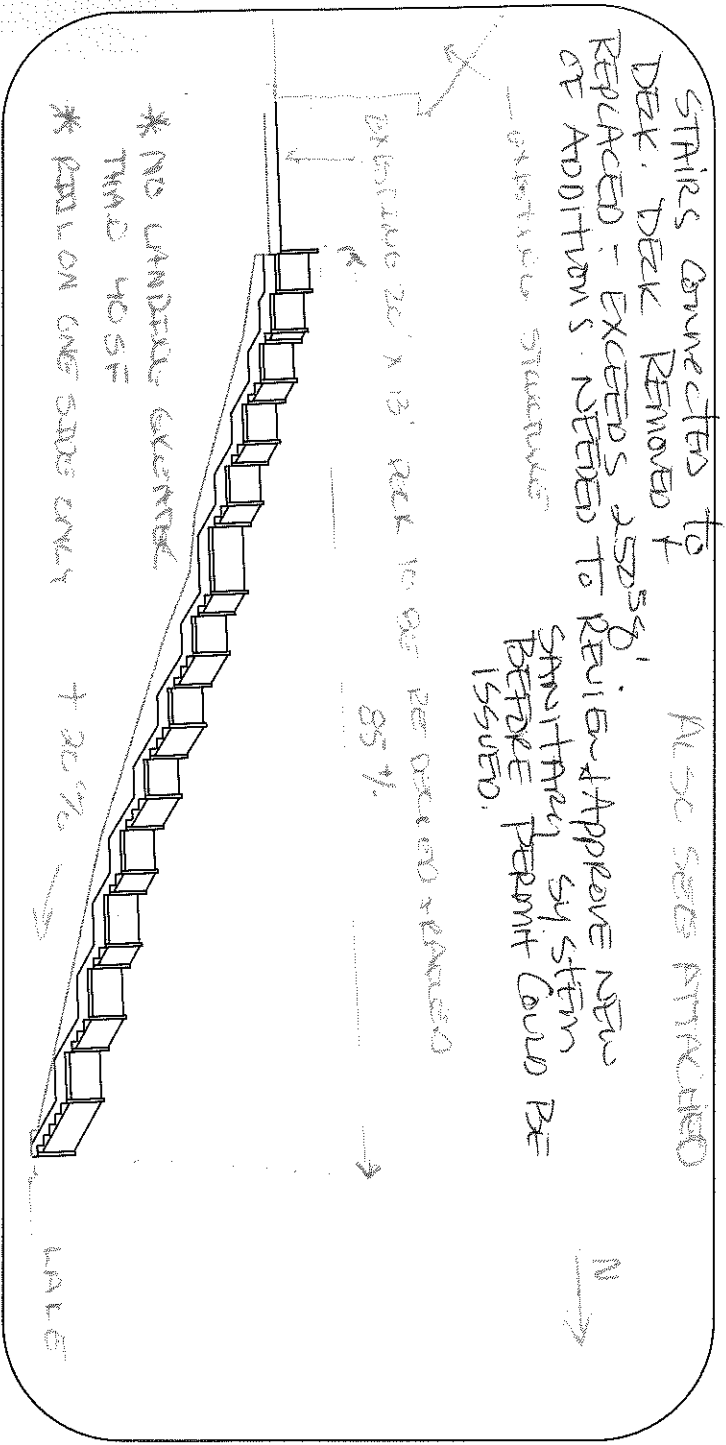 STAIRS CONNECTED to
DECK. DECK REMOVED +
REPLACED - EXCEEDS 250 SF
OF ADDITIONS. NEEDED TO REVIEW & APPROVE NEW
SANITARY SYSTEM
BEFORE PERMIT COULD BE
ISSUED.
ALSO SEE ATTACHED
N
EXISTING STRUCTURE
EXISTING 20' X 13' DECK TO BE RE DECKED + RAILED
85'
* NO LANDING GREATER
THAN 40 SF
* RAIL ON ONE SIDE ONLY
+ 20%
LAKE